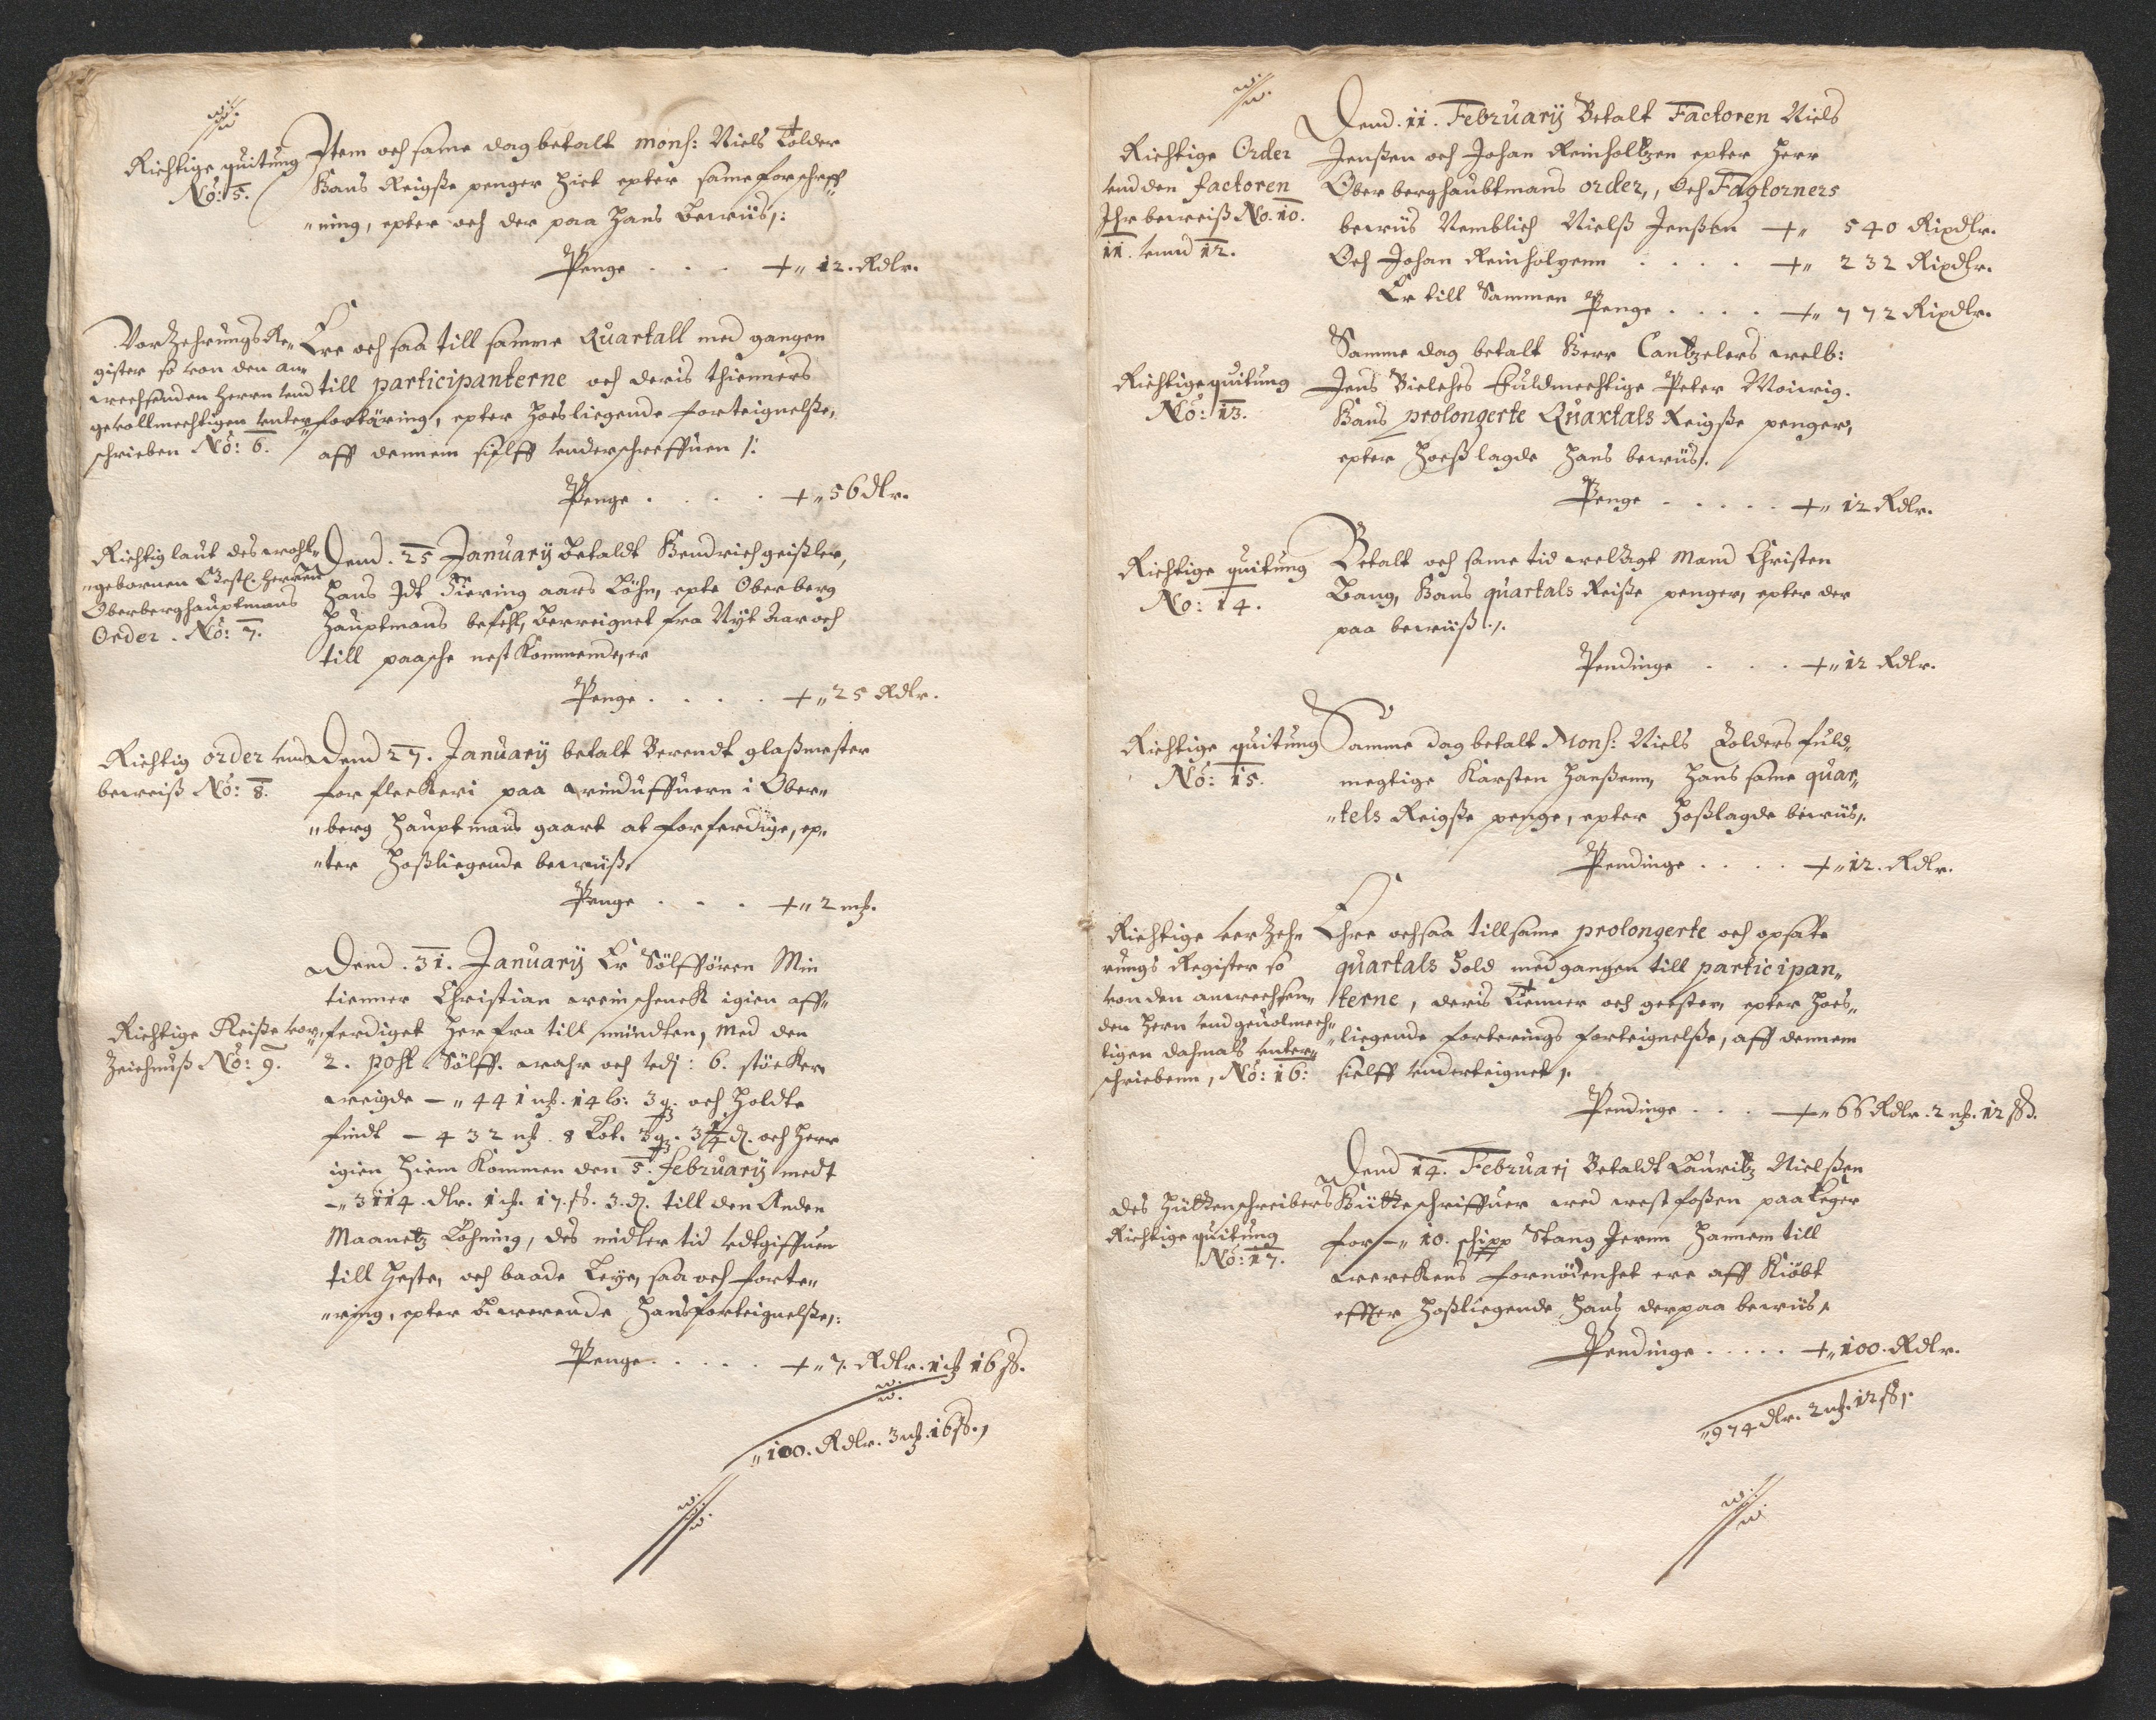 Richtige quitung
No: 5.
Item och same dag betalt Mons: Niels Tolder
Hans Reigsse penger hiet epter same forschreff
"ning, epter och der paa hans Beviis,:
Penge . . . + " 12. Rdlr.
Vorzehrungs Re-
gister so von den an-
wessenden Herrn und
gevollmechtigen unter-
schrieben No: 6.
Ere och saa till samme Quartall med gangen
till participanterne och deris thienners
fortäring, epter hoesliegende forteignelsse,
aff dennem sielff underschreffuen /:
Penge . . . . + " 56 dlr.
Richtig laut des wohl-
"gebornen Gest: Herren
Oberberghauptmans
Order. No: 7.
Dend. 25 January Betaldt Hendrich geissler,
Hans Idt Fiering aars Löhn, epte Oberberg
Hauptmans befehl, Berreignet fra Nyt Aar och
till paasche nest Kommende, er
Penge . . . . + " 25 Rdlr.
Richtig order und
beweiss No: 8.
Dend 27. January betalt Berendt glassmester
for fleckeri paa vinduffuern i Ober-
"berg Hauptmans gaart at forferdige, ep-
"ter Hossliegende bewiiss
Penge . . . + " 2 mk.
Richtige Reisse vor-
Zeichnuss No: 9.
Dend. 31. January Er Sölffören Min
tienner Christian weinschenck igien aff-
ferdiget her fra till mündten, Med den
2. post Sölff. wahr och udj: 6. stöcker
weigde - " 441 mk. 14 lb: 3 q. och Holdte
findt - 432 mk. 8 Lot. 3 q. 3 1/4 d. och Herr
igien Hiem Kommen den 5. february medt
- " 3114. dlr. 1 mk. 17. ß. 3. d. till den Anden
Maanetz Löhning, des midler tid udtgiffuen
till Heste, och baade Leye, saa och forte-
"ring, epter Bewerende Hans forteignelsse,:
Penge . . . . + " 7. Rdlr. 1 mk 16 ß.
" 100. Rdlr. 3 mk. 16 ß. ,
Richtige Order
und den factoren
Ihr beweiss No. 10.
11. unnd 12.
Dend. 11. February Betalt Factoren Niels
Jenssen och Johan Reinholtzen epter Herr
Oberberghaubtmans order,, Och Fagtorners
bewiis Nemblich Nielss Jenssen + " 540 Rixdlr.
Och Johan Reinholzenn . . . . + " 232 Rixdlr.
Er till Sammen Penge . . . . + " 772 Rixdlr.
Richtige quitung
No: 13.
Samme dag betalt Herr Cantzelers welb:
Jens Bielckes fuldmechtige Peter Moiwig.
Hans prolongerte Quartals Reigsse penger,
epter Hoesslagde Hans bewiis /.
Penge . . . . . + " 12 Rdlr.
Richtige quitung
No: 14.
Betalt och same tid velagt Mand Christen
Bang, Hans quartals Reisse penger, epter der
paa bewiiss ./.
Pendinge . . . + " 12 Rdlr.
Richtige quitung
No: 15.
Samme dag betalt Mons: Niels Tolders fuld-
megtige Karsten Hanssenn, Hans same quar-
"tels Reigsse penge, epter Hosslagde bewiis,.
Pendinge . . . . + " 12. Rdlr.
Richtige verzeh-
rungs Register so
von den anwessen-
den Hern und gevolmech-
tigen dahmals unter-
schriebenn, No: 16:
Ehre och saa till same prolongerte och opsate
quartals Hold medgangen till participan-
terne, deris tienner och gester, epter Hoes-
"liegende forterings forteignelsse, aff dennem
sielff underteignet /.
Pendinge . . . + " 66 Rdlr. 2 mk. 12 ß.
des Hüttenschreibers
Richtige quitung
No: 17.
Dend 14. Februarj Betaldt Lauritz Nielssen
Hütteschriffuer wed westfossen paa Eger
for - " 10. schipp Stang Jernn Hannem till
werckens fornödenhet ere aff Kiöbt
effter Hossliegende Hans derpaa bewiis /.
Pendinge . . . . . + " 100. Rdlr.
" 974 dlr. 2 mk. 12 ß /.